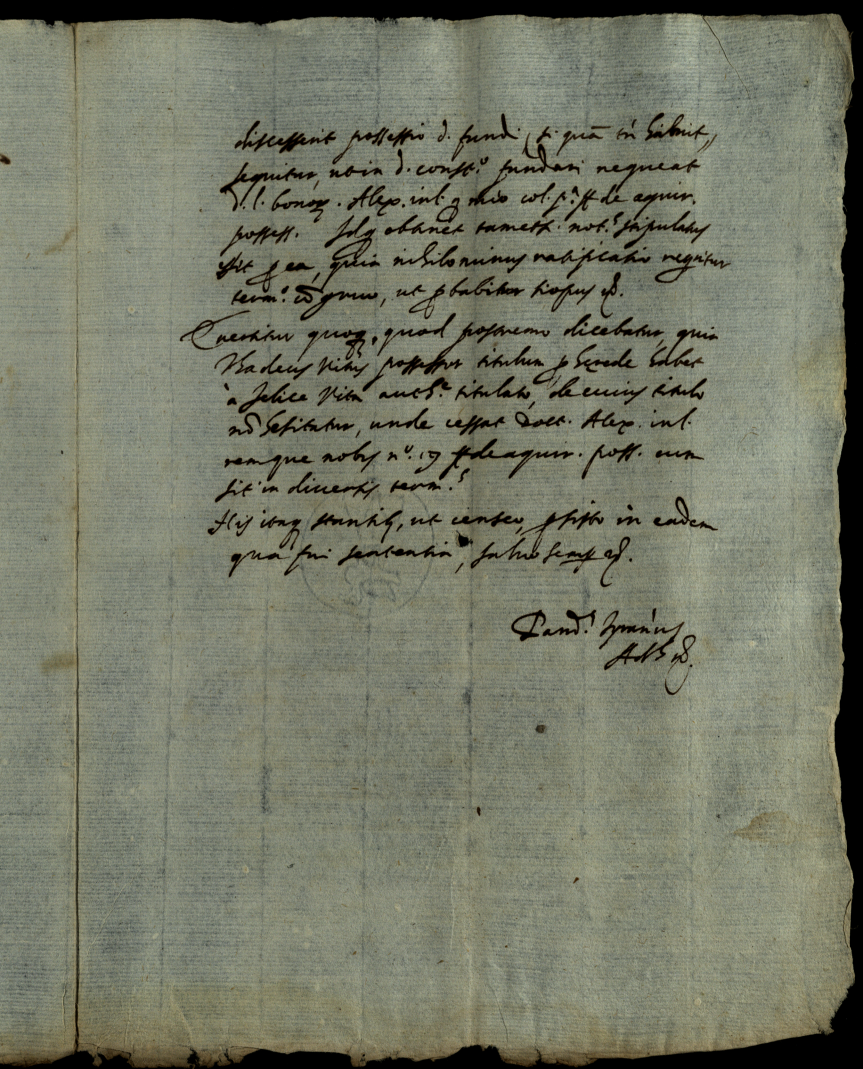 discesserit possessio d. fundi (si quã tñ habuit,)
sequitur, ut in d. const.º fundari nequeat
d. l. bonorꝫ. Alex. in l. col. p.ª ff de aquir.
possess. Idq obtinet tamets. not.s stipulatus
sit ꝓ ea, quia nihilominus ratificatio reqritur
term.º ut ꝓbabitur
Evertitur quoqꝫ, quod postremo dicebatur, quia
Thadeus Vitus possessor titulum ꝓ herede habet
à felice Vita auth.e titulato, de cuius titulo
nõ hesitatur, unde cessat Doct. Alex. in l.
remque nobis n.º 19 ff de aquir. poss. cum
sit in diversis term.s
His itaq stantibq, ut censeo, ꝑsisto in eadem
qua fui sententia, salvo semp
Pand.s